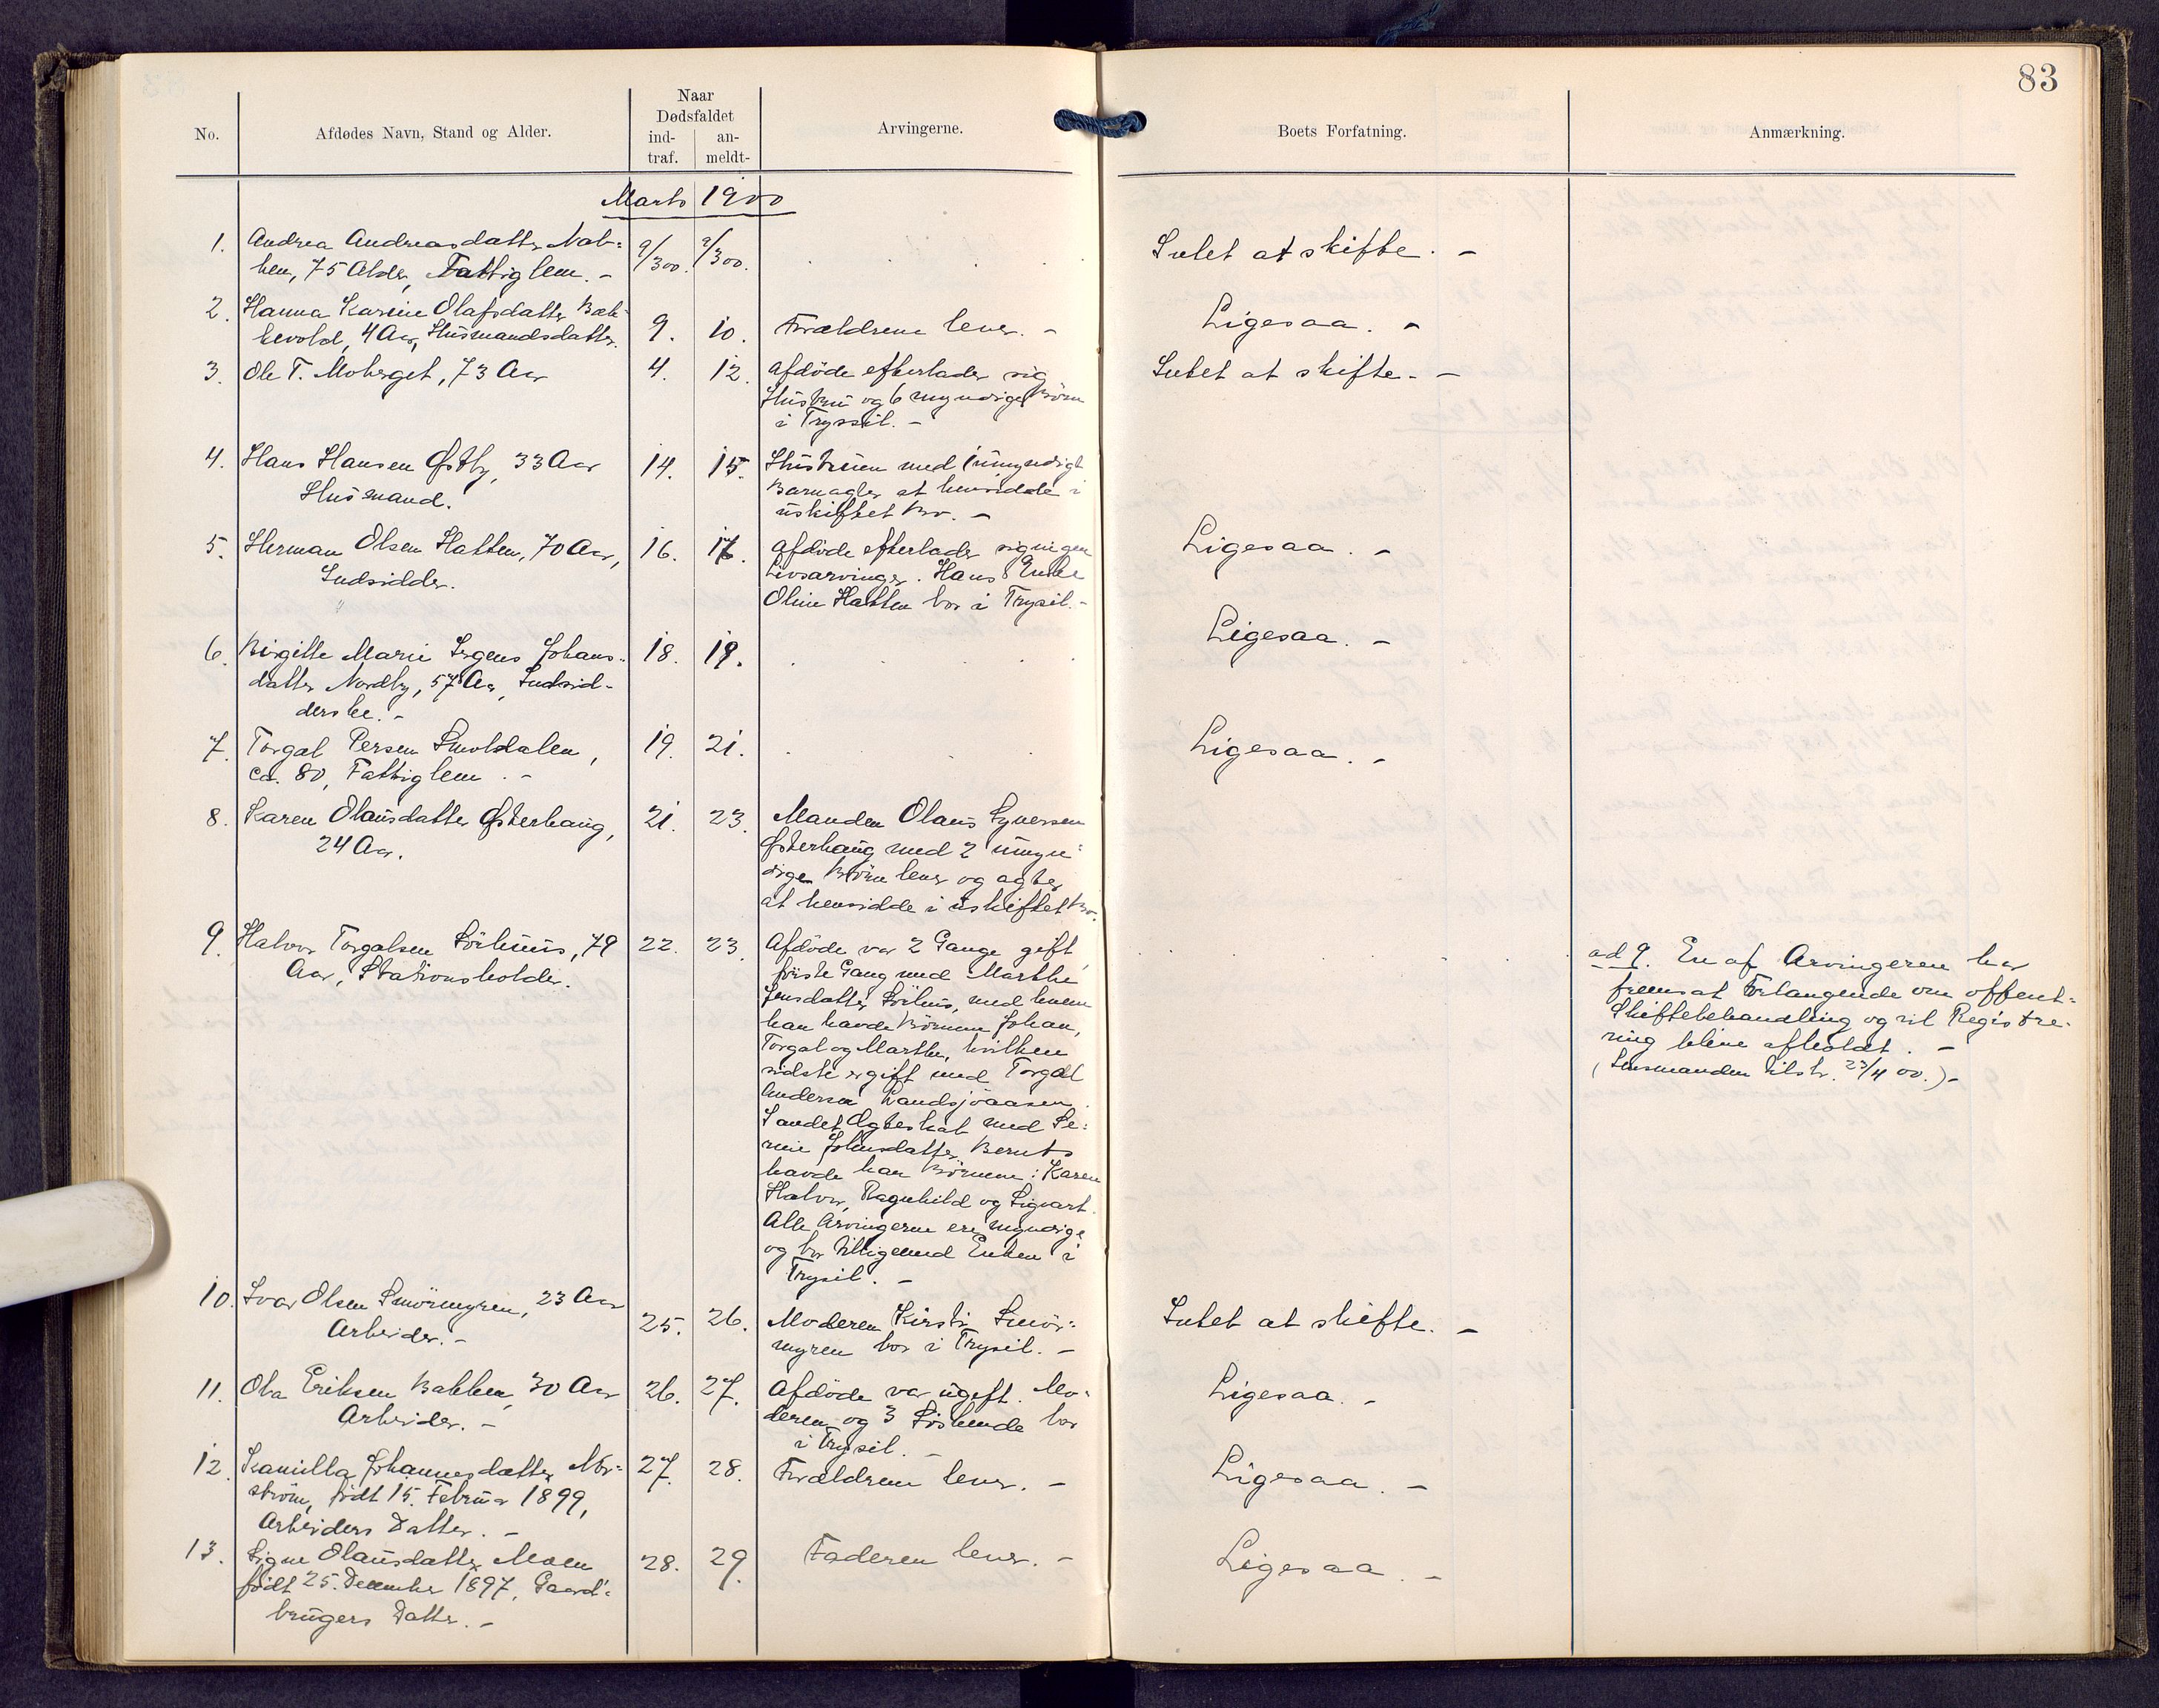 83
No.
Afdødes Navn, Stand og Alder.
Naar
Dødsfaldet
ind-
traf.
an-
meldt-
Arvingerne.
Boets Forfatning.
Anmærkning.
Marts 1900
1. Andrea Andreasdatter Nab-
ben, 75 Alder, Fattiglem. -
9/3 00. 9/3 00.
Intet at skifte. -
2. Hanna Karine Olafsdatter Bæk-
kevold, 4 Aar, Husmandsdatter.
9. 10. Forældrene lever. -
Ligesaa. -
3. Ole T. Moberget, 73 Aar
4. 12. Afdöde efterlader sig
Hustru og 6 myndige Börn
i Tryssil. -
Intet at skifte. -
4. Hans Hansen Østby, 33 Aar
Husmand.
14. 15. Hustruen med 1 umyndigt
Barn agter at hensidde i
uskiftet Bo. -
5. Herman Olsen Hatten, 70 Aar,
Indsidder.
16. 17. Afdöde efterlader sig ingen
Livsarvinger. Hans Enke
Oline Hatten bor i Trysil. -
Ligesaa. -
6. Birgitte Marie Johans-
datter Nordby, 57 Aar, Indsid-
derske. -
18. 19.
Ligesaa. -
7. Torgal Persen
ca. 80, Fattiglem. -
19. 21.
Ligesaa. -
8. Karen Olausdatter Østerhaug,
24 Aar.
21. 23. Manden Olaus Syversen
Østerhaug med 2 umyn-
dige Börn lever og agter
at hensidde i uskiftet Bo.
9. Halvor Torgalsen Sörhuus, 79
Aar, Stationsholder.
22. 23. Afdöde var 2 Gange gift,
förste Gang med Marthe
Jensdatter Sörhus, med hvem
han havde Börnene Johan,
Torgal og Marthe, hvilken
sidste er gift med Torgal
Andersen Landsjöaasen.
I andet Ægteskab med Se-
rine Johnsdatter Bernts
havde han Börnene: Karen
Halvor, Ragnhild og Sigvart.
Alle Arvingerne ere myndige
og bor tilligemed Enken i
Trysil. -
ad 9. En af Arvingerne har
fremsat Forlangende om offent-
Skiftebehandling og vil Registre-
ring blive afholdt. -
(Lensmanden tilstr. 23/4 00.) -
10. Ivar Olsen Smörmyren, 23 Aar
Arbeider. -
25. 26. Moderen Kirsti Smör-
myren bor i Trysil. -
Intet at skifte. -
11. Ola Eriksen Bakken, 30 Aar
Arbeider. -
26. 27. Afdöde var ugift. Mo-
deren og 3 Söskende bor
i Trysil. -
Ligesaa. -
12. Kamilla Johannesdatter Mor-
ström, födt 15. Februar 1899,
Arbeiders Datter. -
27. 28. Forældrene lever. -
Ligesaa. -
13. Signe Olausdatter Moen
födt 25. December 1897, Gaard-
brugers Datter. -
28. 29. Faderen lever. -
Ligesaa. -